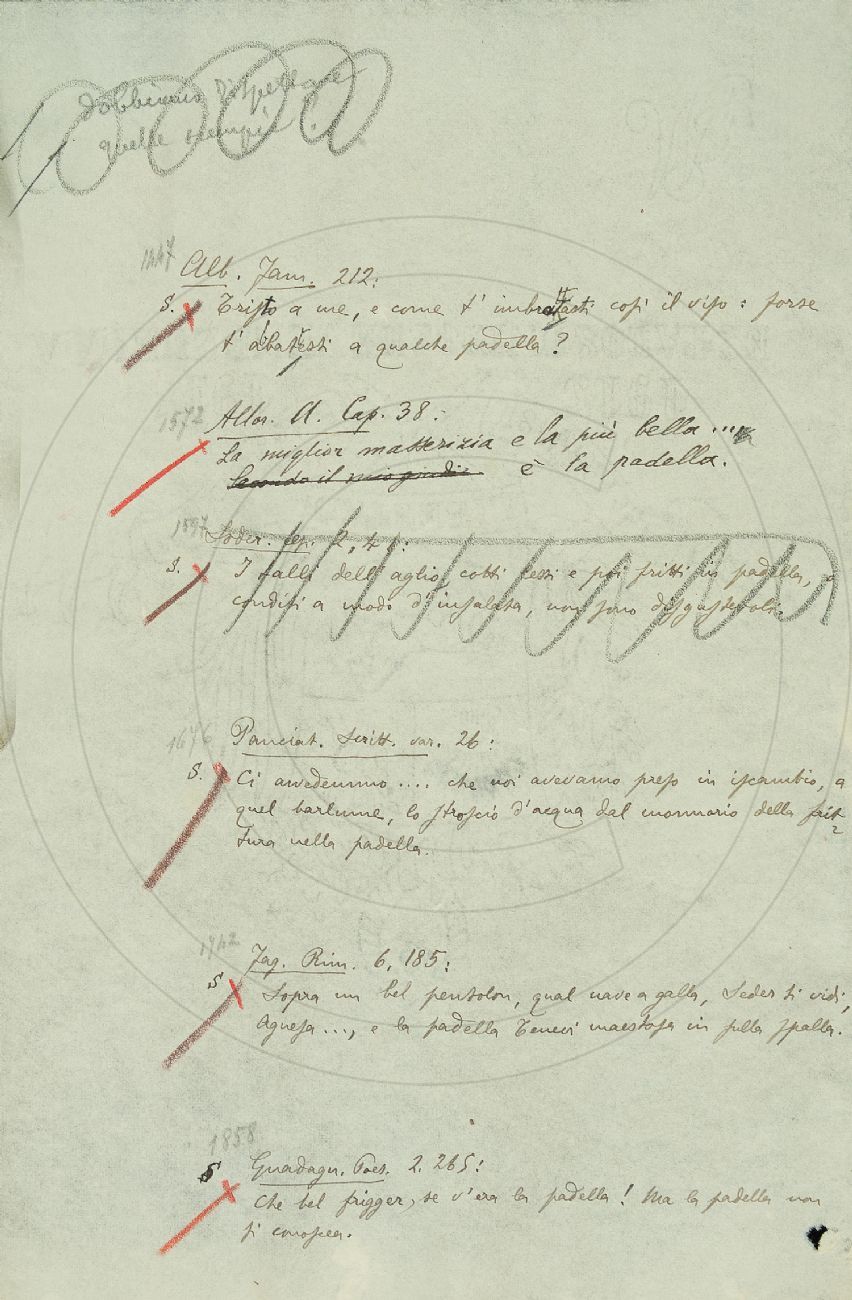 dobbiamo rispettare
quelle
1447
Alb. Fam. 212:
S. Tristo a me, e come t' imbrattasti così il viso: forse
t' abattesti a qualche padella?
1572
Allor. A. Cap. 38:
La miglior masserizia e la più bella....
è la padella.
1597
Soder. 2, 41:
S. I talli dell'aglio cotti lessi e poi fritti in padella, o
conditi a modo d'insalata, non sono disgustevoli.
1676
Panciat. Scritt. var. 26:
S. Ci avvedemmo .... che noi avevamo preso in iscambio, a
quel barlume, lo stroscio d'acqua dal mormorio della frit-
tura nella padella.
1742
Fag. Rim. 6, 185:
S Sopra un bel pentolon, qual nave a galla, Seder ti vidi,
Agnesa ..., e la padella Tenevi maestosa in sulla spalla.
1858
S Guadagn. Poes. 2. 265:
Che bel frigger, se v'era la padella! Ma la padella non
si conoscea.